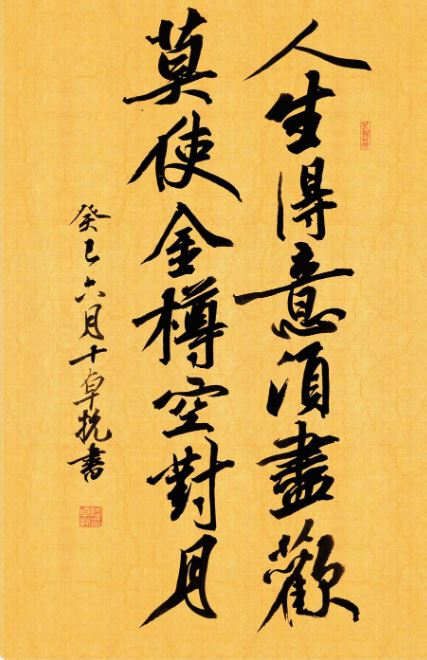 人生得意須盡歡
莫使金樽空對月
癸巳六月十卓書